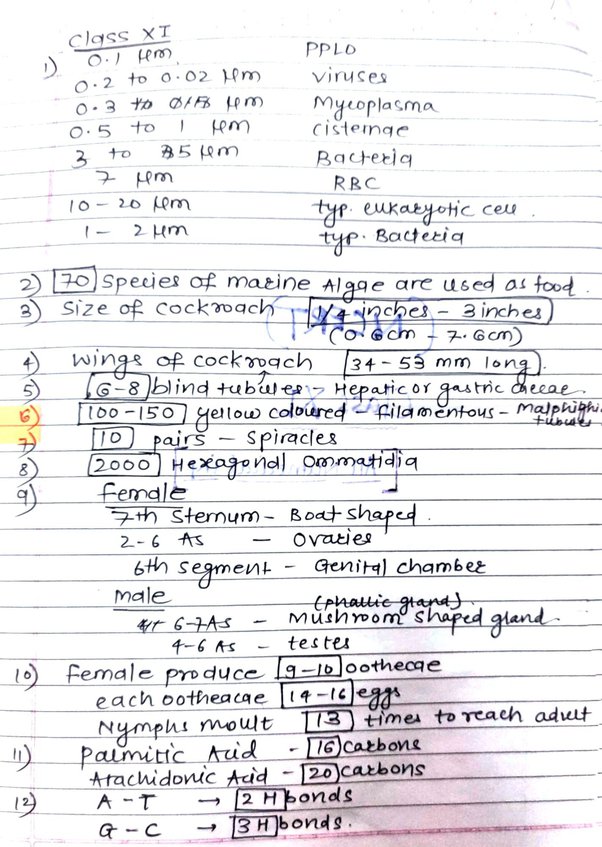 Class XI
1) 0.1 μm PPLO
0.2 to 0.02 μm viruses
0.3 to μm Mycoplasma
0.5 to 1 μm cisternae
3 to 5 μm Bacteria
7 μm RBC
10 - 20 μm typ. eukaryotic cell.
1 - 2 μm typ. Bacteria
2) 70 Species of marine Algae are used as food.
3) Size of cockroach 1/4 inches - 3 inches
(0.6cm - 7.6cm)
4) Wings of cockroach 34-53 mm long.
5) 6-8 blind tubules - Hepatic or gastric caecae.
6) 100-150 yellow coloured filamentous - Malphighi. tubules
7) 10 pairs - Spiracles
8) 2000 Hexagonal Ommatidia
9) female
7th Sternum - Boat shaped.
2-6 AS - Ovaries
6th segment - Genital chamber
male (phallic gland)
6-7AS - Mushroom shaped gland.
4-6 AS - testes
10) Female produce 9-10 oothecae
each ootheacae 14-16 eggs
Nymphs moult 13 times to reach adult
11) Palmitic Acid - 16 carbons
Arachidonic Acid - 20 carbons
12) A - T → 2 H bonds
G - C → 3 H bonds.